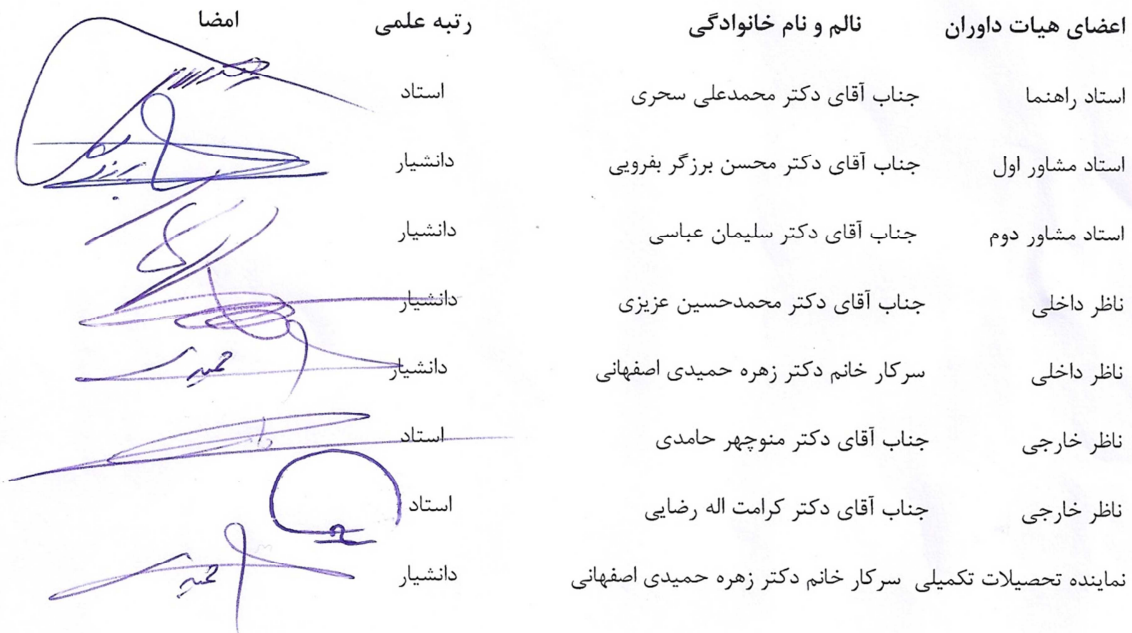 اعضای هیات داوران نالم و نام خانوادگی رتبه علمی امضا
استاد راهنما جناب آقای دکتر محمدعلی سحری استاد
استاد مشاور اول جناب آقای دکتر محسن برزگر بفرویی دانشیار
استاد مشاور دوم جناب آقای دکتر سلیمان عباسی دانشیار
ناظر داخلی جناب آقای دکتر محمدحسین عزیزی دانشیار
ناظر داخلی سرکار خانم دکتر زهره حمیدی اصفهانی دانشیار
ناظر خارجی جناب آقای دکتر منوچهر حامدی استاد
ناظر خارجی جناب آقای دکتر کرامت اله رضایی استاد
نماینده تحصیلات تکمیلی سرکار خانم دکتر زهره حمیدی اصفهانی دانشیار